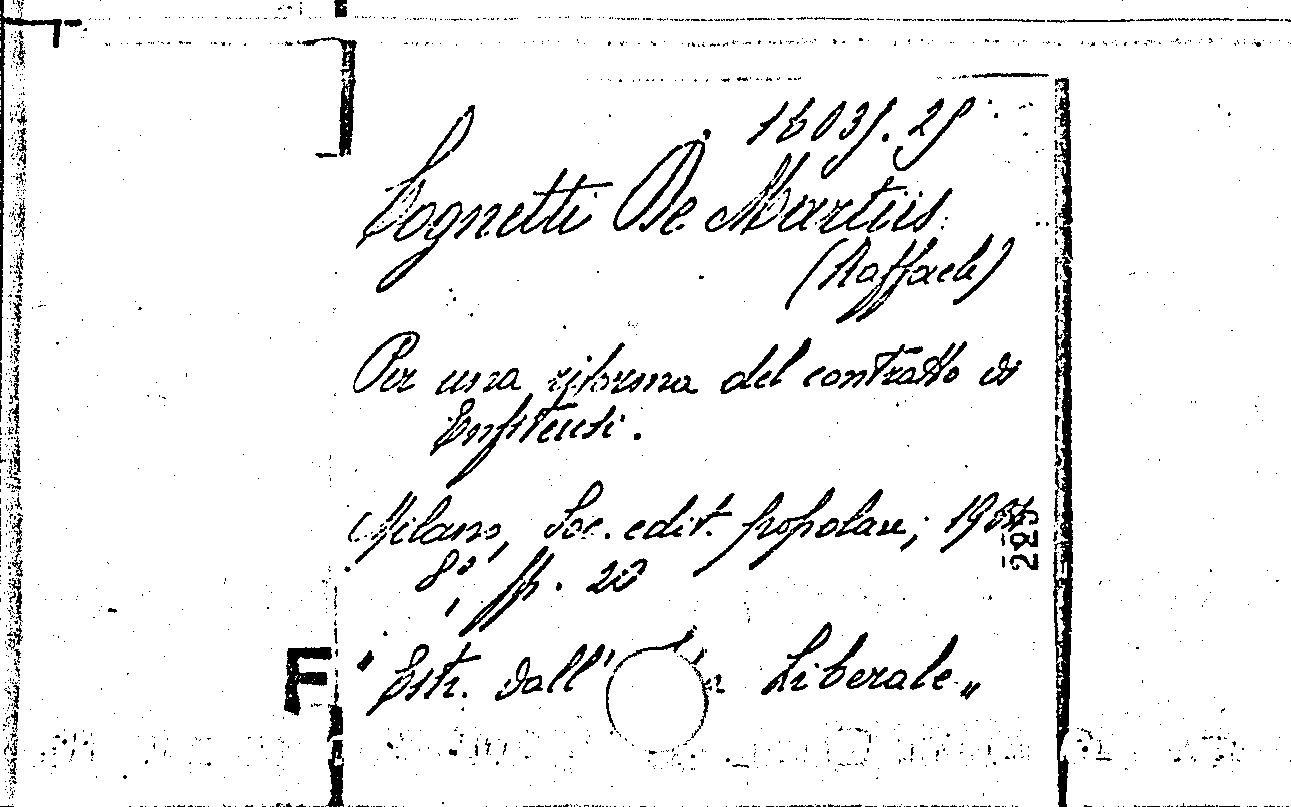 1603f. 2f
Cognetti De Martiis
(Raffaele)
Per una riforma del contratto di
Enfiteusi.
Milano, Soc. edit. popolare, 19
225
8°, pp. 20
F
" Estr. dall' Liberale "